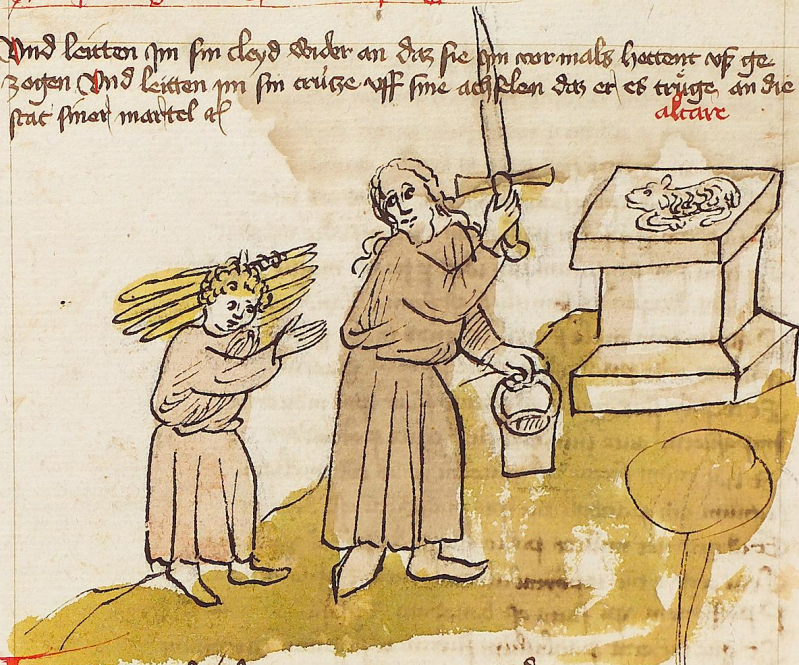 Vnd leitten jm sin cleyd wider an daz sie jm vor mals hettent vß ge
zogen Vnd leitten jm sin crütze vff sine achselen daz er es trüge an die
stat siner martel ꝛc
altare